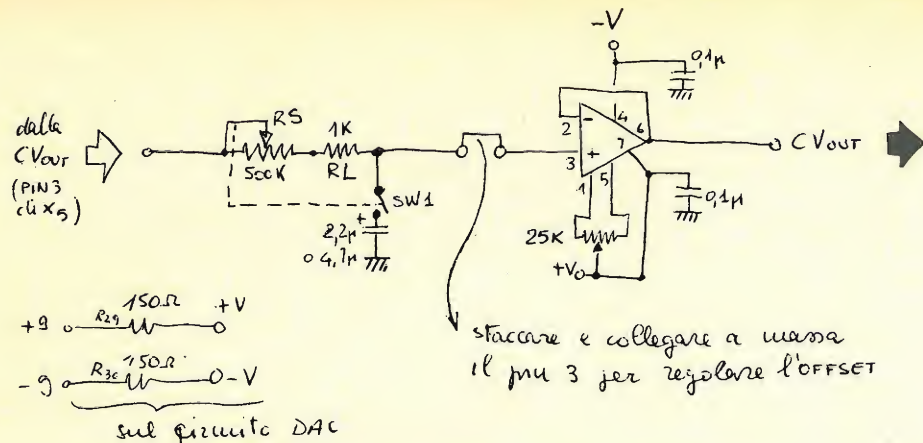 -V
0,1µ
dalla
CVOUT
(PIN3
di X5)
RS
500K
1K
RL
SW1
+
2,2µ
o 4,7µ
2
3
-
+
4
6
7
1
5
CVOUT
0,1µ
25K
+V
+9
R29
150Ω
+V
-9
150Ω
-V
sul circuito DAC
staccare e collegare a massa
il pin 3 per regolare l'OFFSET